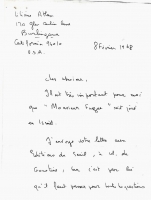 170 
Burlingame
California 94010
U.S.A.
8 Février 19
Cher Monsieur,
Il est très important pour moi
que "Monsieur Fugue" soit joué
en Israël.
J'envoie votre lettre aux
Editions du Seuil, à M. de
car c'est par lui
qu'il faut passer pour toutes les questions